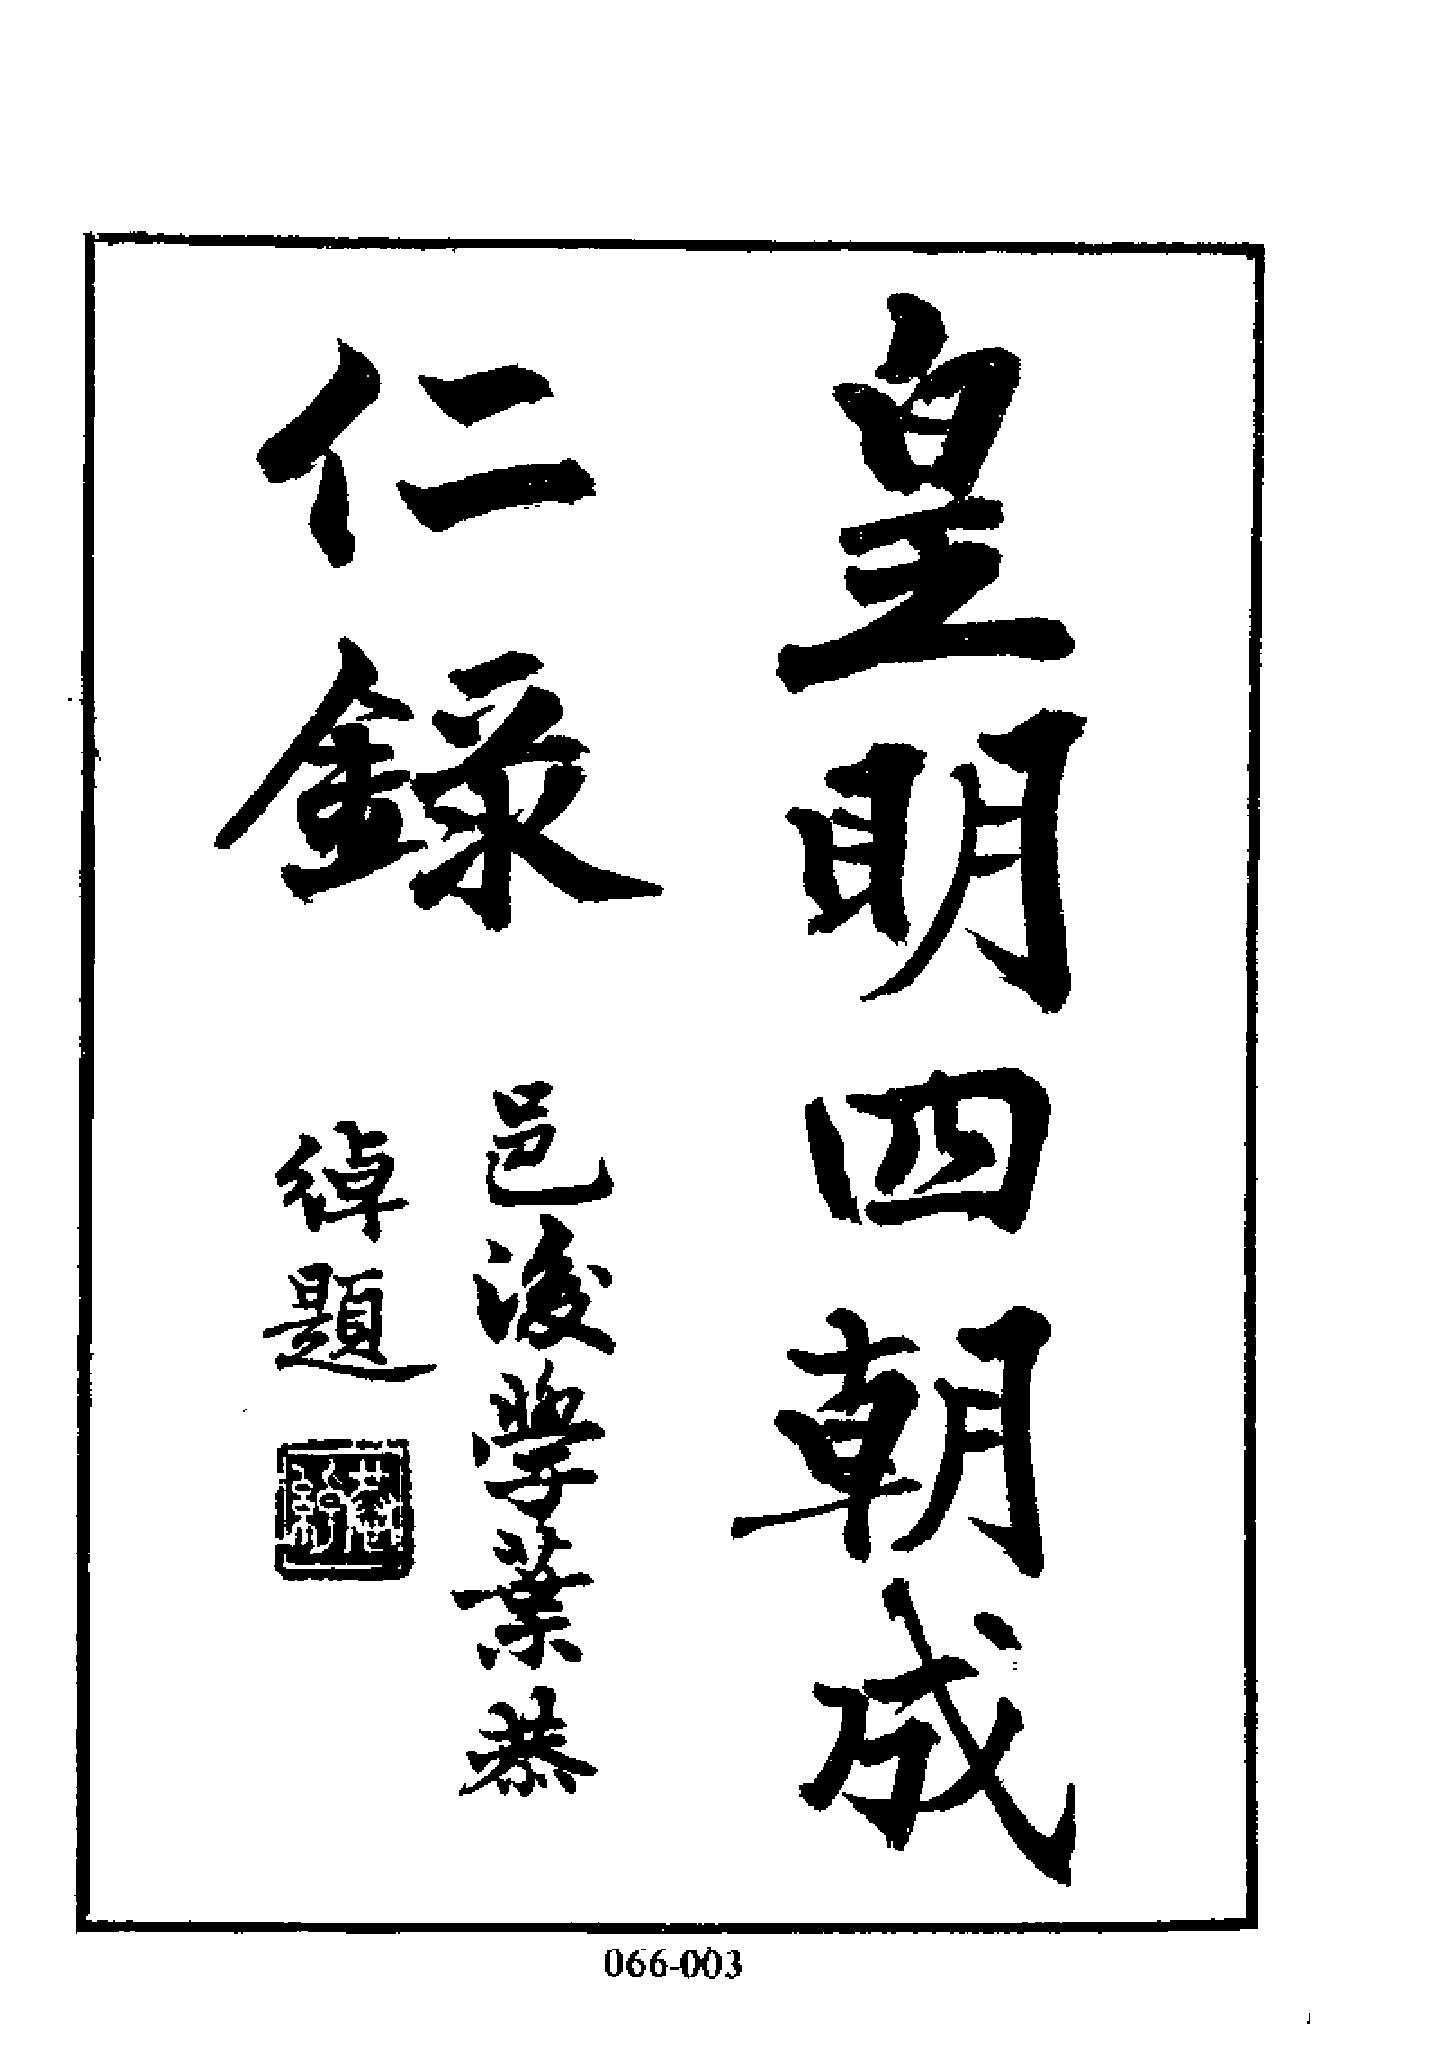 皇明四朝成
仁錄
邑後學葉恭
綽題
066-003